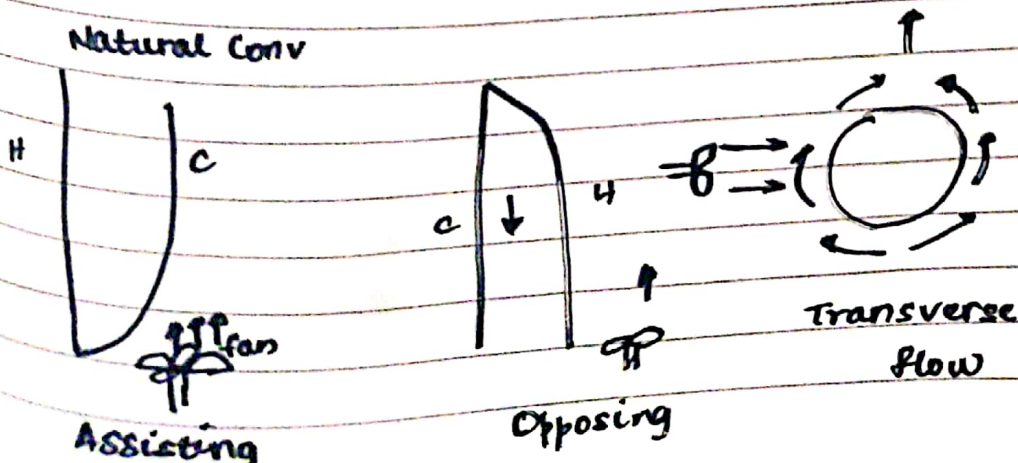 Natural Conv
H
C
fan
Assisting
C
H
Opposing
Transverse
flow